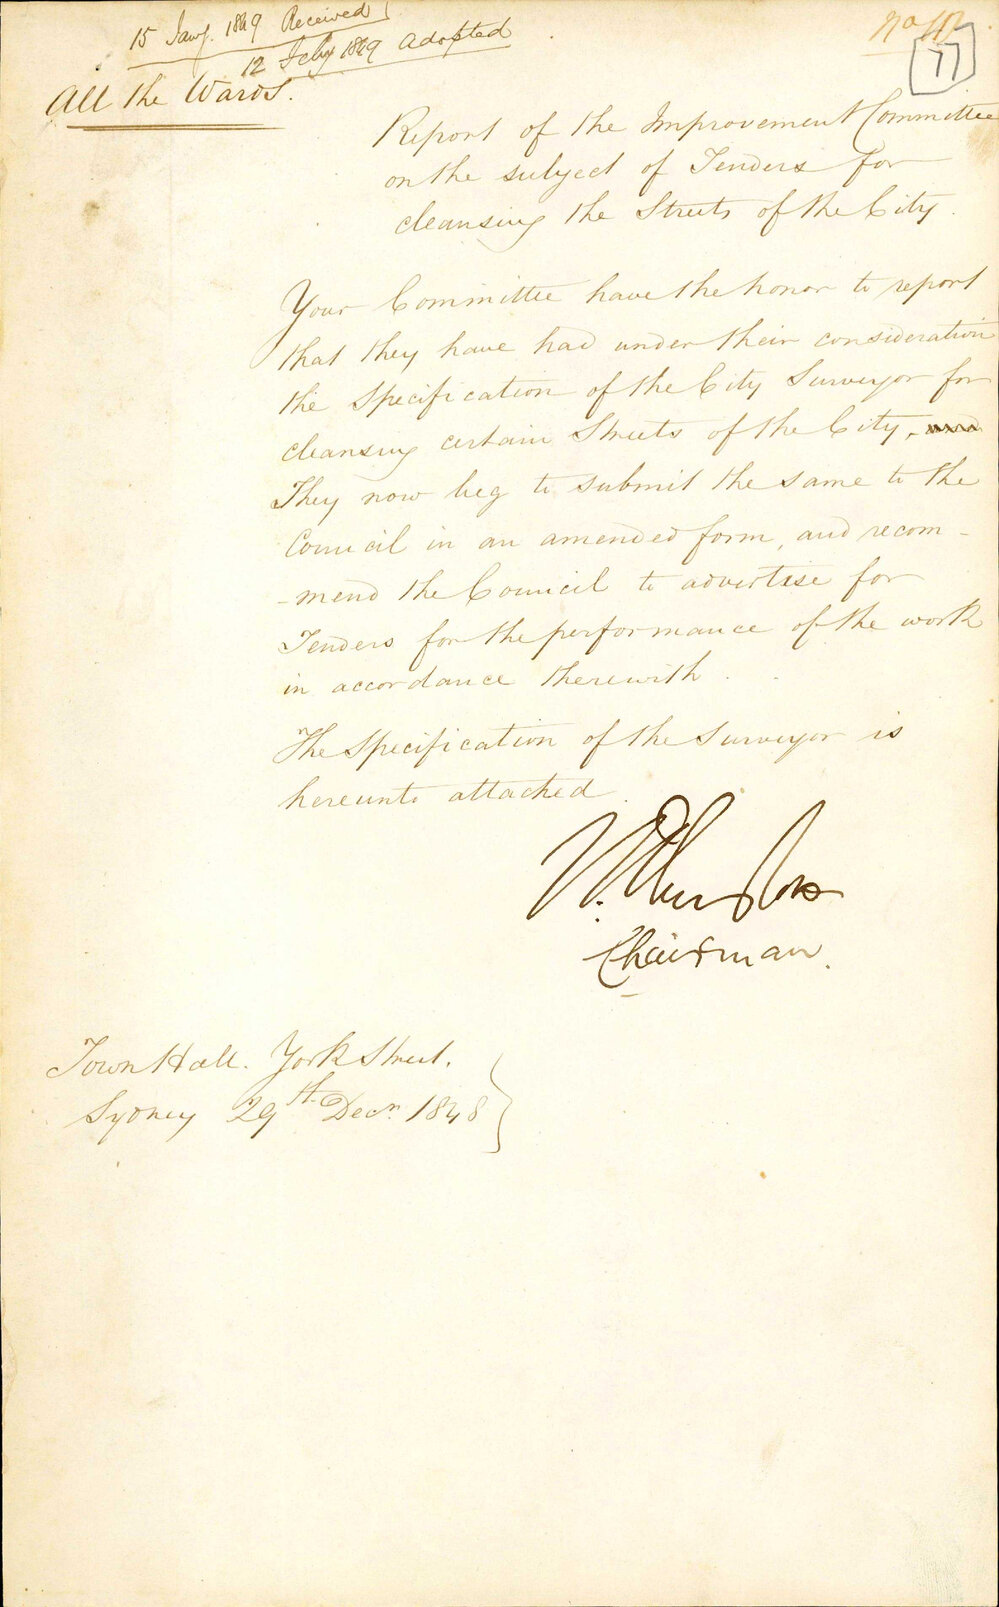 15 Jany. 1849 Received
12 Feby 1849 Adopted
No
77
All the Wards.
Report of the Improvement Committee
on the subject of Tenders for
cleansing the Streets of the City.
Your Committee have the honor to report
that they have had under their consideration
the Specification of the City Surveyor for
cleansing certain Streets of the City,
They now beg to submit the same to the
Council in an amended form, and recom-
-mend the Council to advertise for
Tenders for the performance of the work
in accordance therewith.
The Specification of the Surveyor is
hereunto attached
Chairman.
Town Hall. York Street.
Sydney 29th Decr. 1848